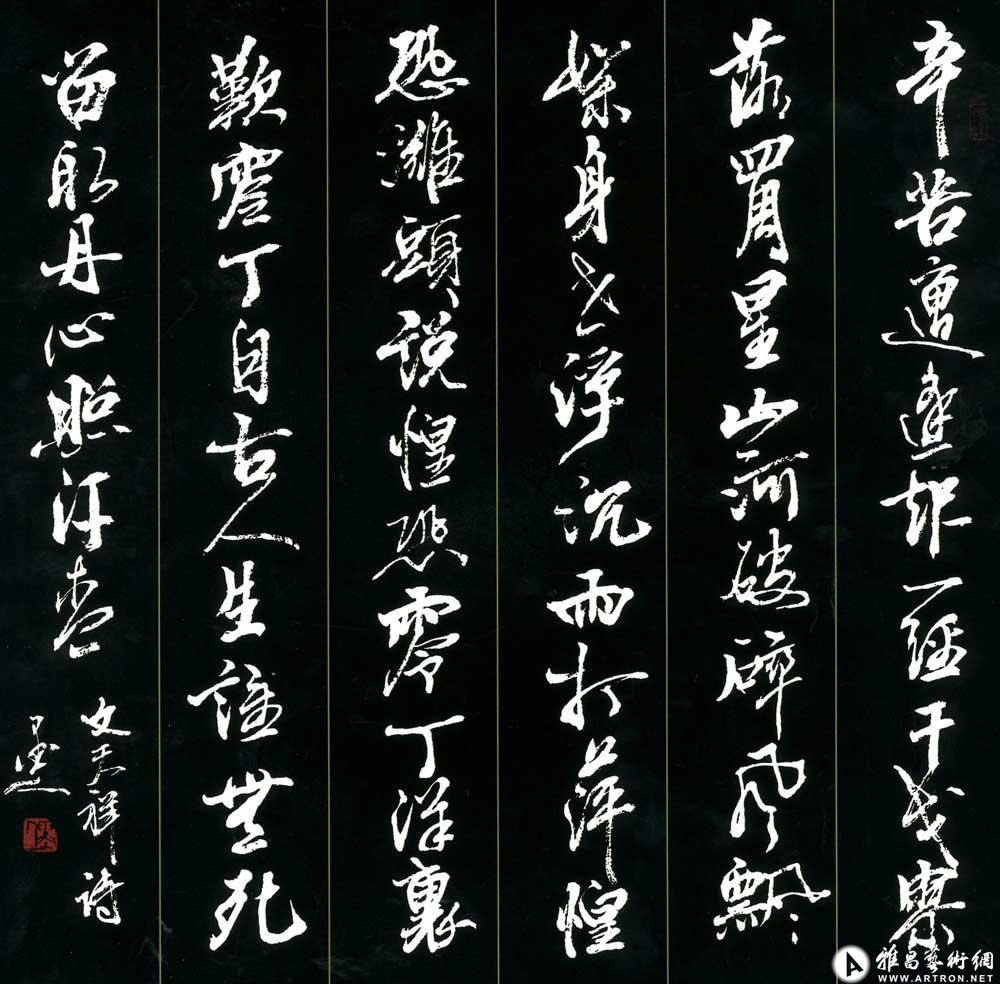 辛苦遭逢起一經干戈寥
落四周星山河破碎風飄
絮身世浮沉雨打萍惶
恐灘頭說惶恐零丁洋裏
歎零丁自古人生誰無死
留取丹心照汗青
文天祥詩
雅昌藝術網
WWW.ARTRON.NET